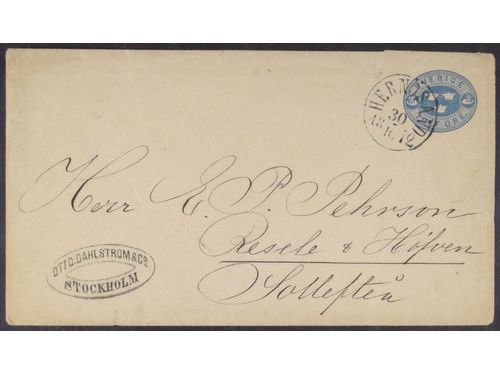 SVERIGE
ÖRE
HERNÖSAND
30
12
Herr E. P. Pehrson
Resele & Höfven
Sollefteå
OTTO.DAHLSTROM & Co
STOCKHOLM